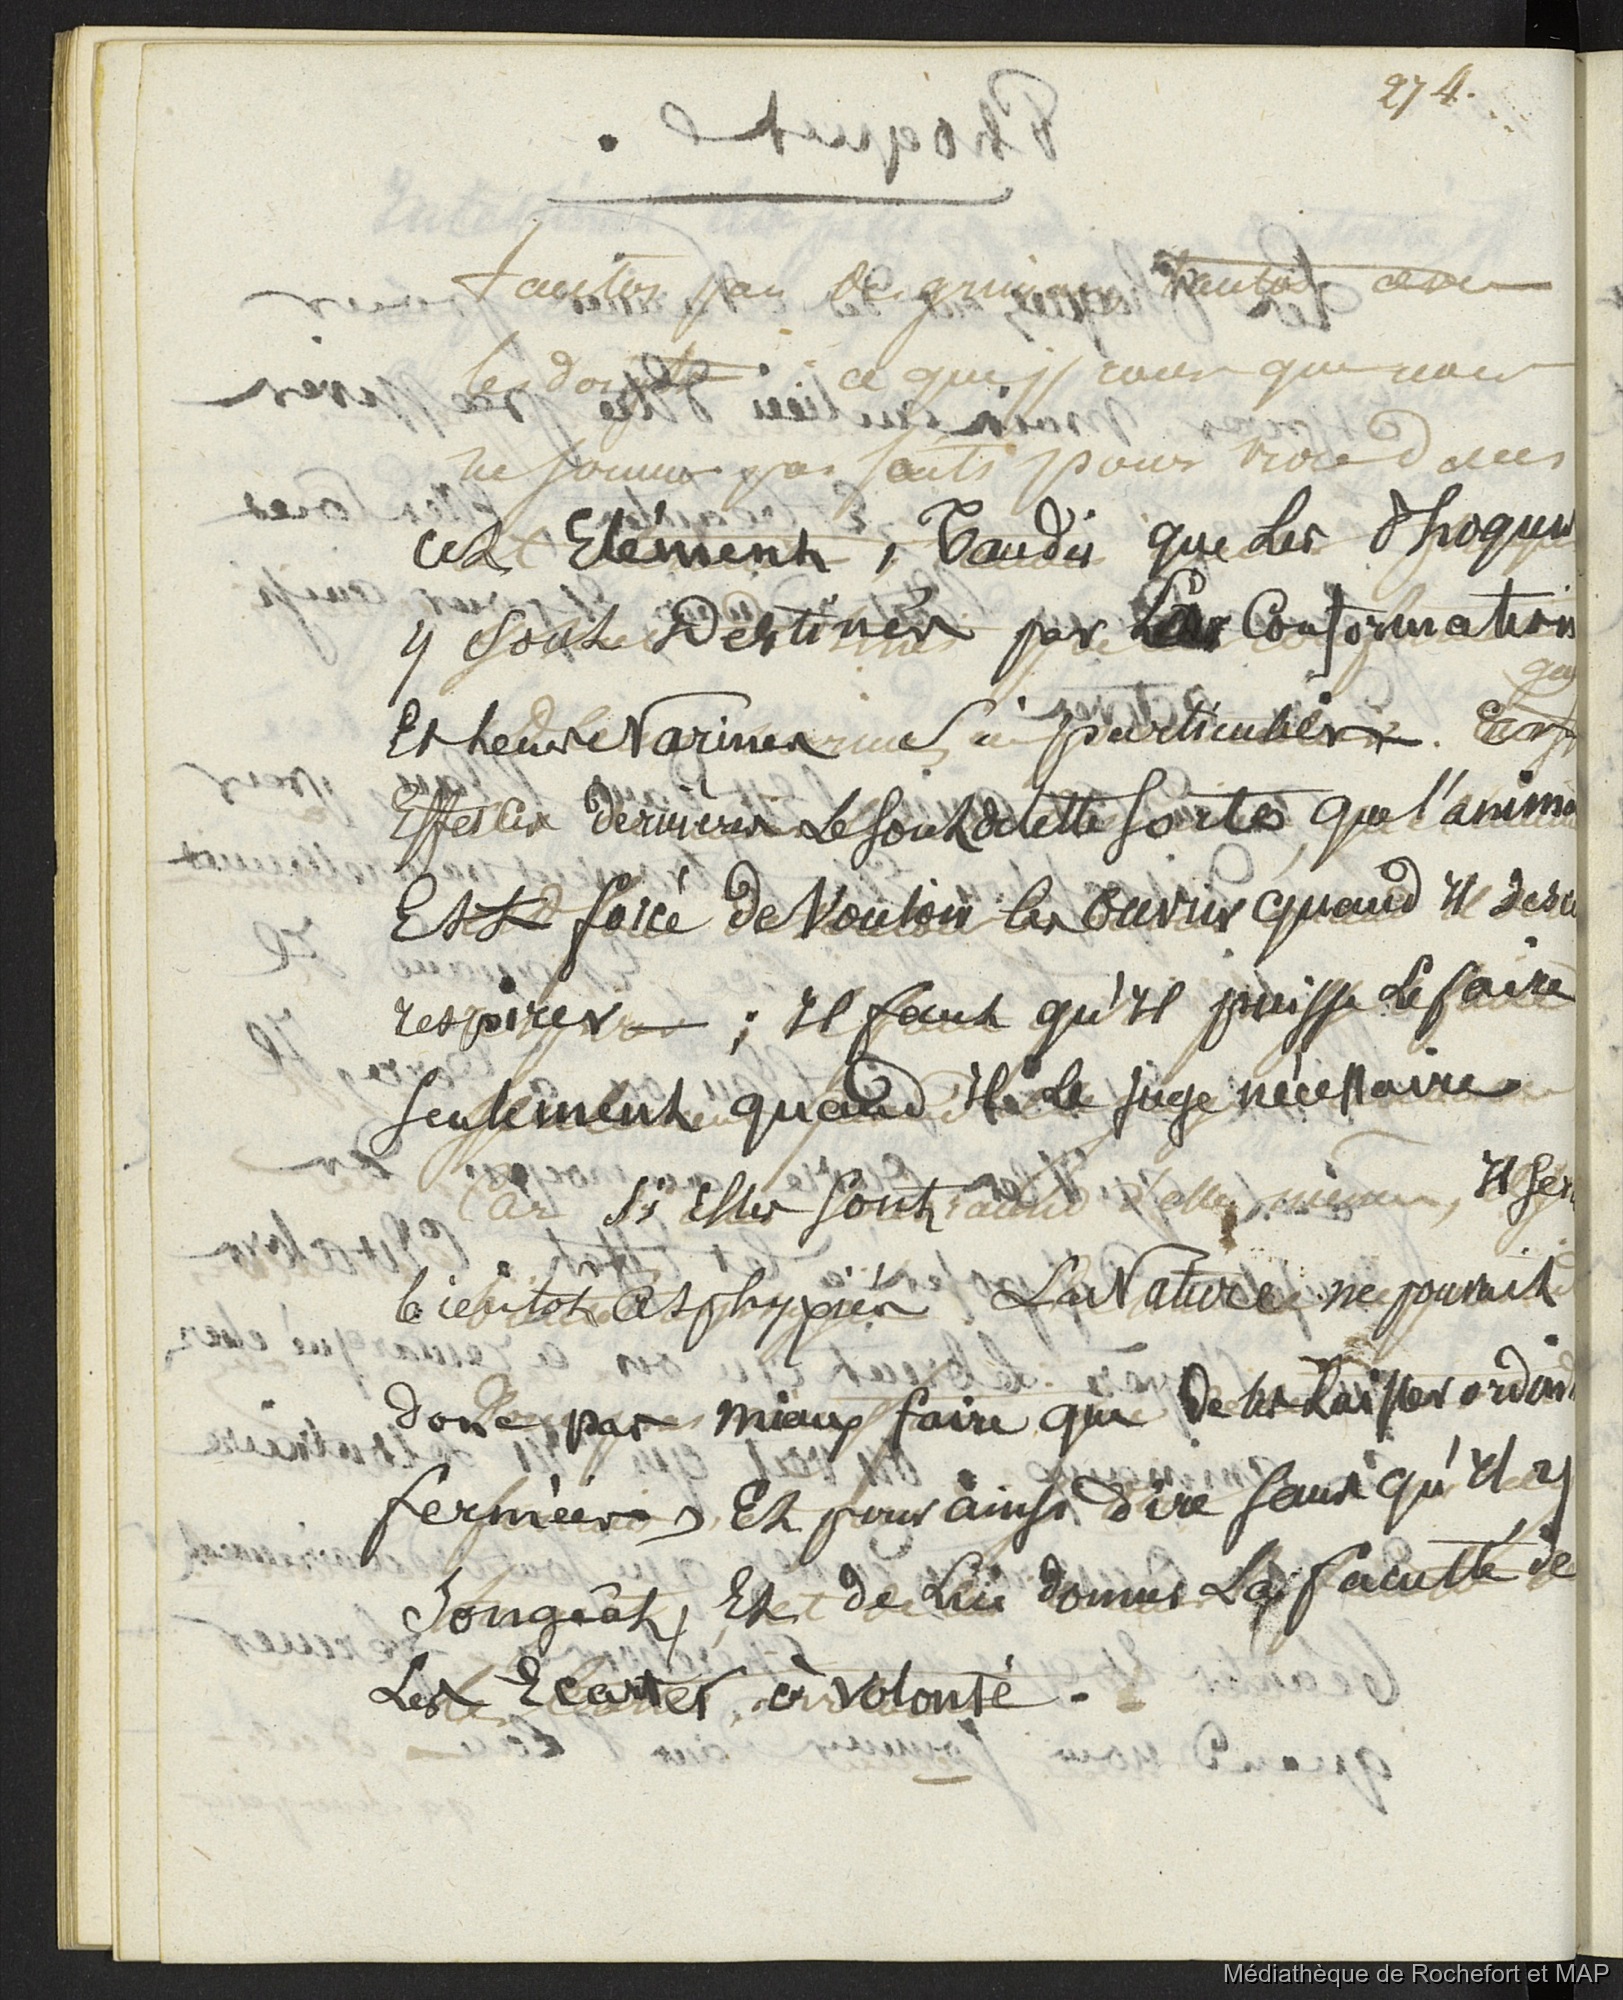 274.
tantôt par des grimaces, tantôt avec
les doigts ce qui prouve que nous
ne sommes pas faits pour vivre dans
cet Elément, Tandis que Les Phoques
y sont Destinés par La Conformation
Et heurs Narines particulière.
Effet Ces dernières Le sont de cette sorte que l'anima
Est forcé de Vouloir les Ouvrir quand il
respirer ; Il faut qu'Il puisse Le faire
seulement quand Il Le juge nécessaire
Car si Elles sont d'elles mêmes, Il ser
bientôt Asphyxiés La Nature ne pourrait
donc pas mieux faire que de les Laisser ordin
fermées, Et pour ainsi Dire sans qu'Il y
songeât, Et de Lui donner La faculté de
Les Ecarter à volonté.
Médiathèque de Rochefort et MAP